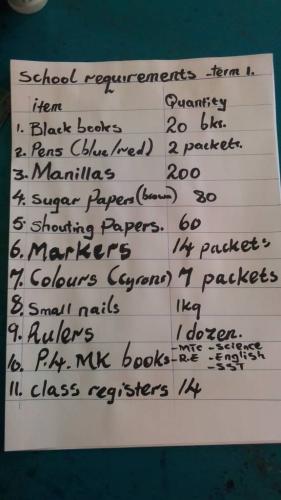 School requirements - term 1.
item Quantity
1. Black books 20 bks.
2. Pens (blue/red) 2 packets.
3. Manillas 200
4. Sugar Papers (brown) 80
5. Shouting Papers. 60
6. Markers 14 packets
7. Colours (Cyrons) 7 packets
8. Small nails 1kg
9. Rulers 1 dozen.
10. P.4. MK books - MTC - Science
- R.E - English
- SST
11. Class registers 14